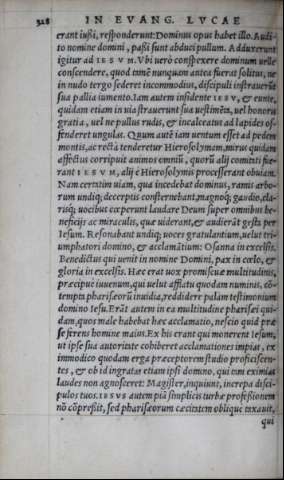 328 IN EVANG. LVCAE
erant iusti, responderunt: Dominus opus habet illo. Audi-
to nomine domini, passi sunt abduci pullum. Adduxerunt
igitur ad IESVM. Vbi uerò conspexere dominum uelle
conscendere, quod tamē nunquam antea fuerat solitus, ne
in nudo tergo sederet incommodius, discipuli instrauerūt
sua pallia iumento. Iam autem insidente IESV, & eunte,
quidam etiam in uia strauerunt sua uestimēta, uel honoris
gratia, uel ne pullus rudis, & incalceatus ad lapides of-
fenderet ungulas. Quum autē iam uentum esset ad pedem
montis, ac rectà tenderetur Hierosolymam, mirus quidam
affectus corripuit animos omniū, quorū alij comitati fue-
rant IESVM, alij è Hierosolymis processerant obuiam.
Nam certatim uiam, qua incedebat dominus, ramis arbo-
rum undiq; decerptis consternebant, magnoq́; gaudio, cla-
risq́; uocibus cœperunt laudare Deum super omnibus be-
neficijs ac miraculis, quæ uiderant, & audierāt gesta per
Iesum. Resonabant undiq; uoces gratulantium, uelut tri-
umphatori domino, & acclamātium: Osanna in excelsis.
Benedictus qui uenit in nomine Domini, pax in cœlo, &
gloria in excelsis. Hæc erat uox promiscuæ multitudinis,
præcipue iuuenum, qui uelut afflatu quodam numinis, cō-
tempta pharisæorū inuidia, reddidere palàm testimonium
domino Iesu. Erāt autem in ea multitudine pharisæi qui-
dam, quos male habebat hæc acclamatio, nescio quid præ
se ferens homine maius. Ex his erant qui monerent Iesum,
ut ipse sua autoritate cohiberet acclamationes impias, ex
immodico quodam erga præceptorem studio proficiscen-
tes, & ob id ingratas etiam ipsi domino, qui tam eximias
laudes non agnosceret: Magister, inquiunt, increpa disci-
pulos tuos. IESVS autem piā simplicis turbæ professionem
nō cōpressit, sed pharisæorum cæcitatem oblique taxauit,
qui